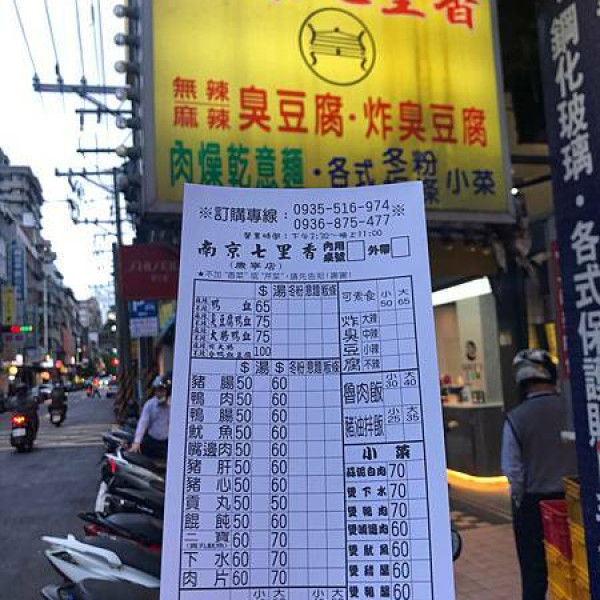 七里香
無辣
麻辣
臭豆腐·炸臭豆腐
肉燥乾意麵·各式冬粉
小菜
鋼化玻璃·各式保護貼
※訂購專線:0935-516-974
0936-875-477※
營業時間:下午2:30~晚上11:00
南京七里香
(慶寧店)
內用桌號
外帶
★不加"香菜"或"芹菜",請先告知!謝謝!
$ 湯 冬粉 意麵 粄條
鴨血 65
臭豆腐鴨血 75
大腸鴨血 75
100
$ 湯 $ 冬粉 意麵 粄條
豬腸 50 60
鴨肉 50 60
鴨腸 50 60
魷魚 50 60
嘴邊肉 50 60
豬肝 50 60
豬心 50 60
貢丸 50 50
餛飩 50 60
二寶 60 70
下水 60 70
肉片 60 70
可素食 小50 大65
炸臭豆腐
大辣
中辣
小辣
不辣
魯肉飯 小30 大40
豬油拌飯 小25 大35
小菜
蒜泥白肉 70
燙下水 70
燙鴨肉 70
燙嘴邊肉 60
燙魷魚 60
燙豬腸 60
燙鴨腸 60